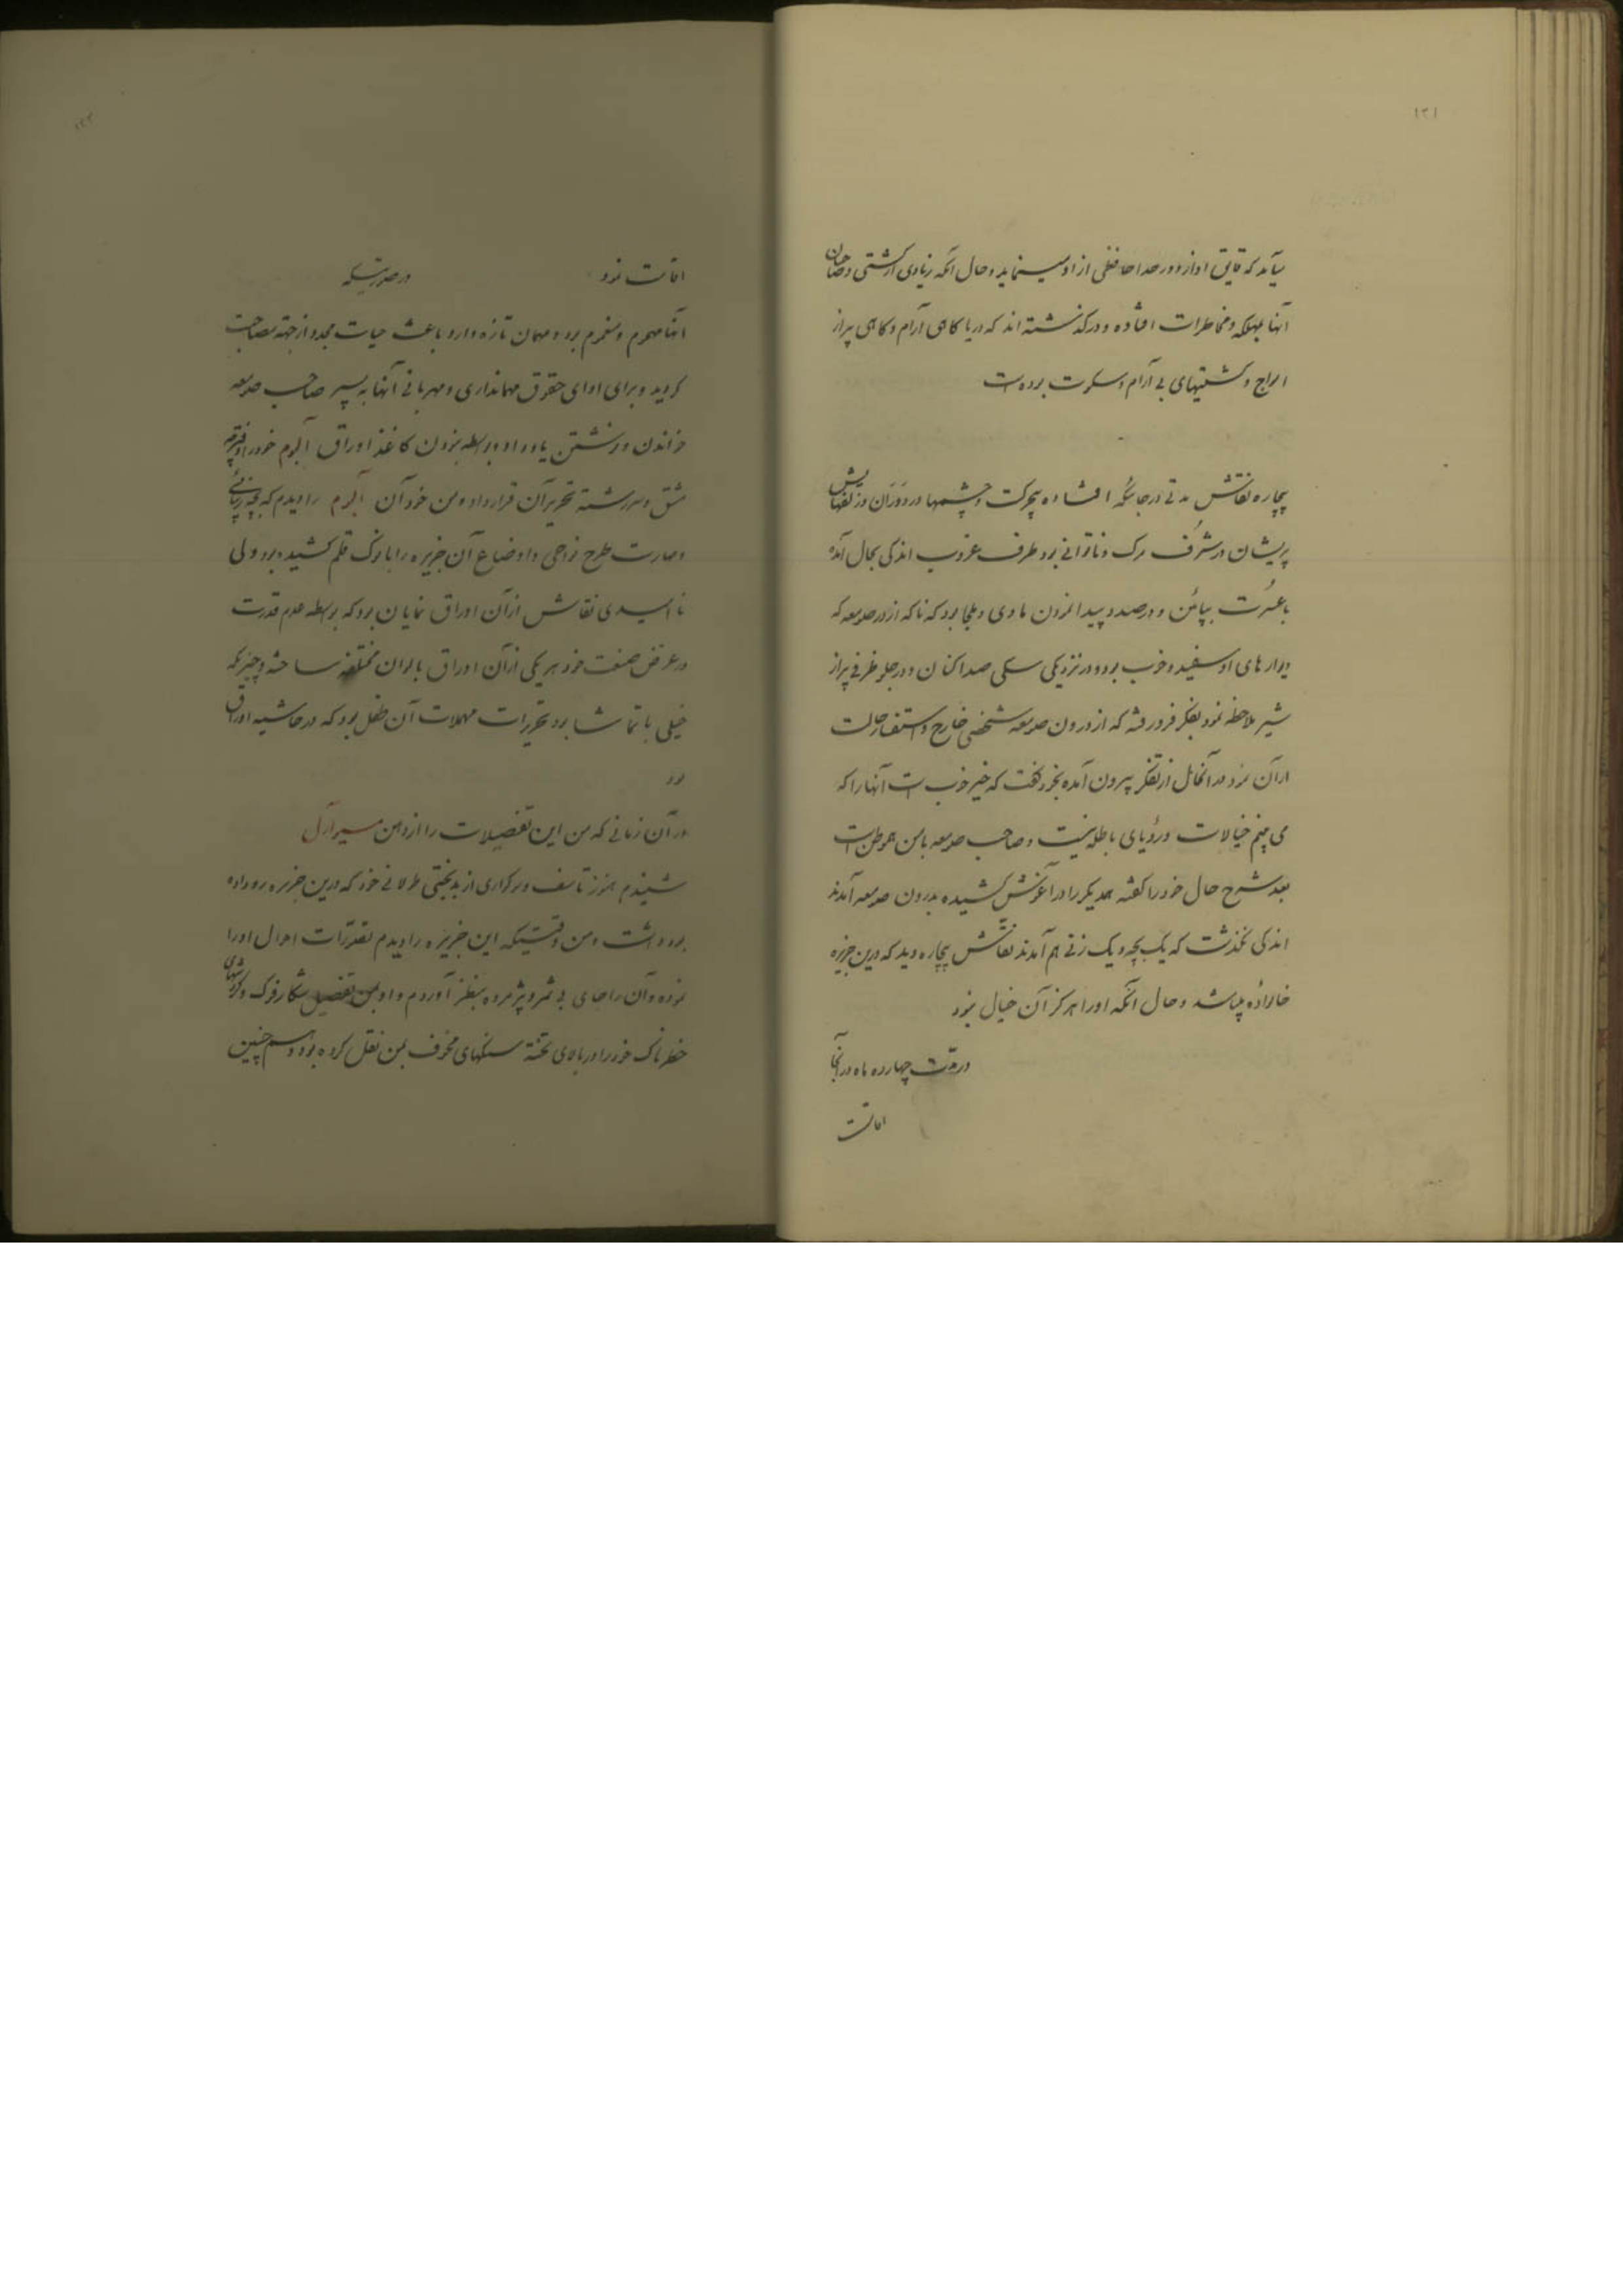 ۱۲۱
میآمد که قایق او از دور خداحافظی از او مینماید و حال آنکه زیادی از کشتی و صاحبان
آنها بمهلکه و مخاطرات افتاده و درگذشته اند که دریا گاهی آرام و گاهی پر از
امواج و کشتیهای بی آرام و سکوت بوده است
بیچاره نقاش مدتی در جائیکه افتاده بیحرکت و چشمها در دوران و زلفهایش
پریشان در شرف مرگ و ناتوانی بود طرف غروب اندکی بحال آمده
با عسرت بپائین و در صدد پیدا نمودن ماوی و ملجا بود که ناگه از در صومعه که
دیوارهای او سفید و خوب بود و در نزدیکی سگی صدا کنان و در جلو ظرفی پر از
شیر ملاحظه نمود بفکر فرو رفته که از درون صومعه شخصی خارج و استفسار حالت
از آن نمود در آنحال از تفکر بیرون آمده بخود گفت که خیر خوب است آنها را که
می بینم خیالات و رؤیای باطله نیست و صاحب صومعه با من هموطن است
بعد شرح حال خود را گفته همدیگر را در آغوش کشیده بدرون صومعه آمدند
اندکی نگذشت که یک بچه و یک زنی هم آمدند نقاش بیچاره دید که درین جزیره
خانواده میباشد و حال آنکه او را هرگز آن خیال نبود
در مدت چهارده ماه در آنجا
اقامت
۱۲۲
اقامت نمود در صورتیکه
آنها مهموم و مغموم بود و مهمان تازه وارد باعث حیات مجدد از جهة مصاحبت
گردید و برای ادای حقوق مهمانداری و مهربانی آنها به پسر صاحب صومعه
خواندن و نوشتن یاد داد و بواسطه نبودن کاغذ اوراق آلبوم خود را دفترچه
مشق و سررشته تحریر آن قرار داد و من خود آن آلبوم را دیدم که بچه
و مهارت طرح نواحی و اوضاع آن جزیره را با نوک قلم کشیده بود ولی
ناامیدی نقاش از آن اوراق نمایان بود که بواسطه عدم قدرت
در عرض صنعت خود هر یکی از آن اوراق بالوان مختلفه ساخته و چیزیکه
خیلی با تماشا بود تحریرات مهملات آن طفل بود که در حاشیه اوراق
بود
در آن زمانی که من این تفصیلات را از دهن مسیو آرل
شنیدم هنوز تاسف و برکناری از بدبختی طولانی خود که درین جزیره رو داده
بود داشت و من وقتیکه این جزیره را دیدم تقدیرات احوال او را
نموده و آن را جای بی ثمر و پژمرده بنظر آوردم و او بمن تفصیل شکار فوک و
خطرناک خود را در بالای تخته سنگهای مخوف بمن نقل کرده بود و هم چنین